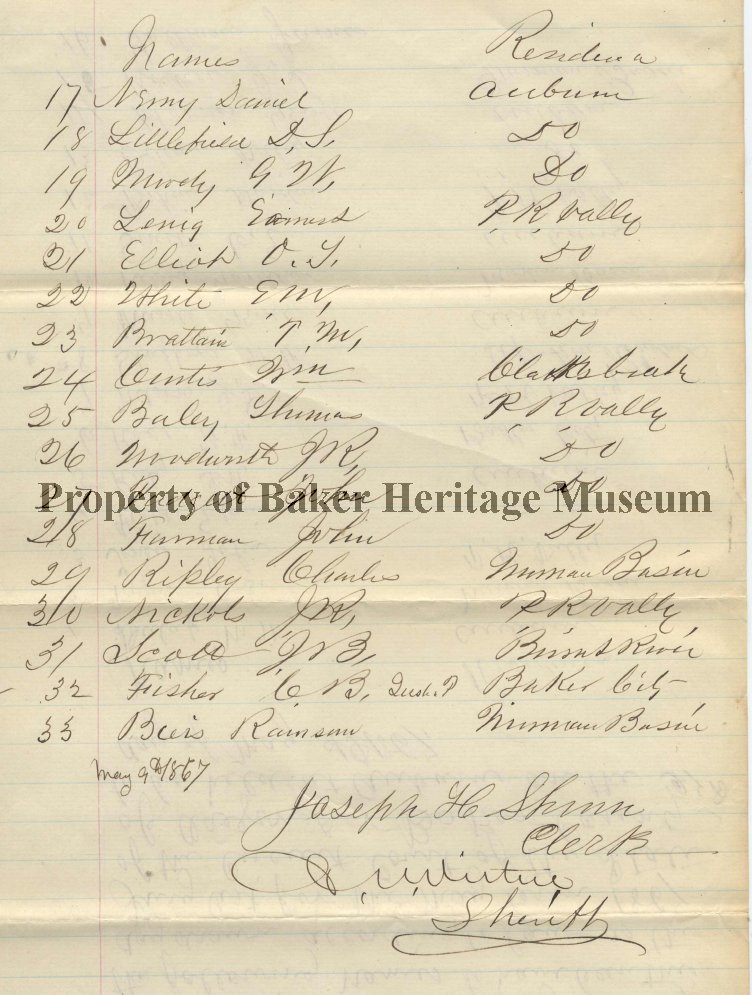 Names Residence
17 Nemy Daniel Auburn
18 Littlefield D, S, Do
19 Moody G W, Do
20 Lenig P, R, Vally
21 Elliott O. T. Do
22 White E M, Do
23 Brattain T M, Do
24 Curtis Wm
25 Baley Thomas P, R, Vally
26 Woodworth J R, Do
27 John Do
Property of Baker Heritage Museum
28 Furman John Do
29 Ripley Charles Basin
30 Nickols J R, P R Vally
31 Scott J B, Burnt River
32 Fisher C B, Baker City
33 Basin
May 9th 1867
Joseph H Shinn
Clerk
Sheriff